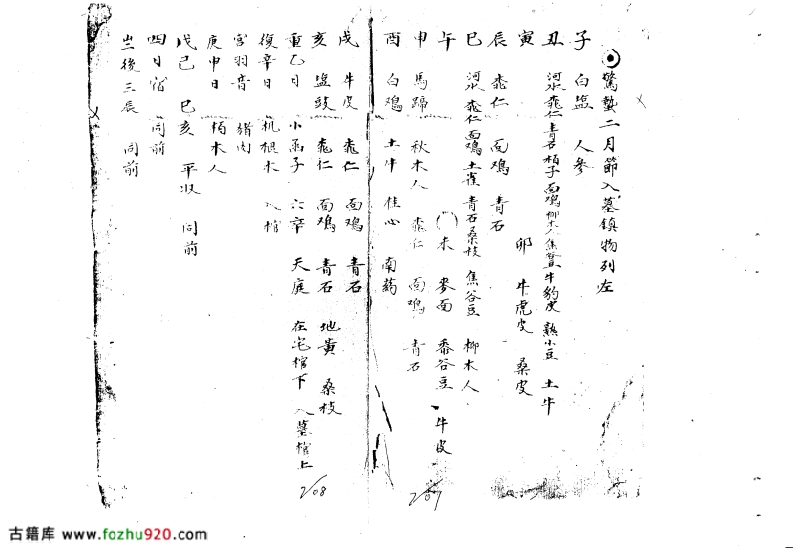 驚蟄二月節入墓鎮物列左
子 白塩 人參
丑 河水 桃仁 青石 柏子 面鳮 柳木人 焦 牛豹皮 熟小豆 土牛
寅 卯 牛虎皮 桑皮
辰 桃仁 面鳮 青石
巳 河水 桃仁 面鳮 土雀 青石 桑枝 焦谷豆 柳木人
午 木 麥面 番谷豆 牛皮
申 馬蹄 秋木人 桃仁 面鳮 青石
酉 白鳮 土牛 桂心 南葯
戌 牛皮 桃仁 面鳮 青石
亥 塩豉 桃仁 面鳮 青石 地黄 桑枝
重乙日 小函子 六辛 天庭 在宅棺下 入墓棺上
復辛日 机根木 入棺
宮羽音 猪肉
庚申日 栢木人
戊己 巳亥 平收 同前
四日宿 同前
後三辰 同前
207
208
古籍库 www.fozhu920.com